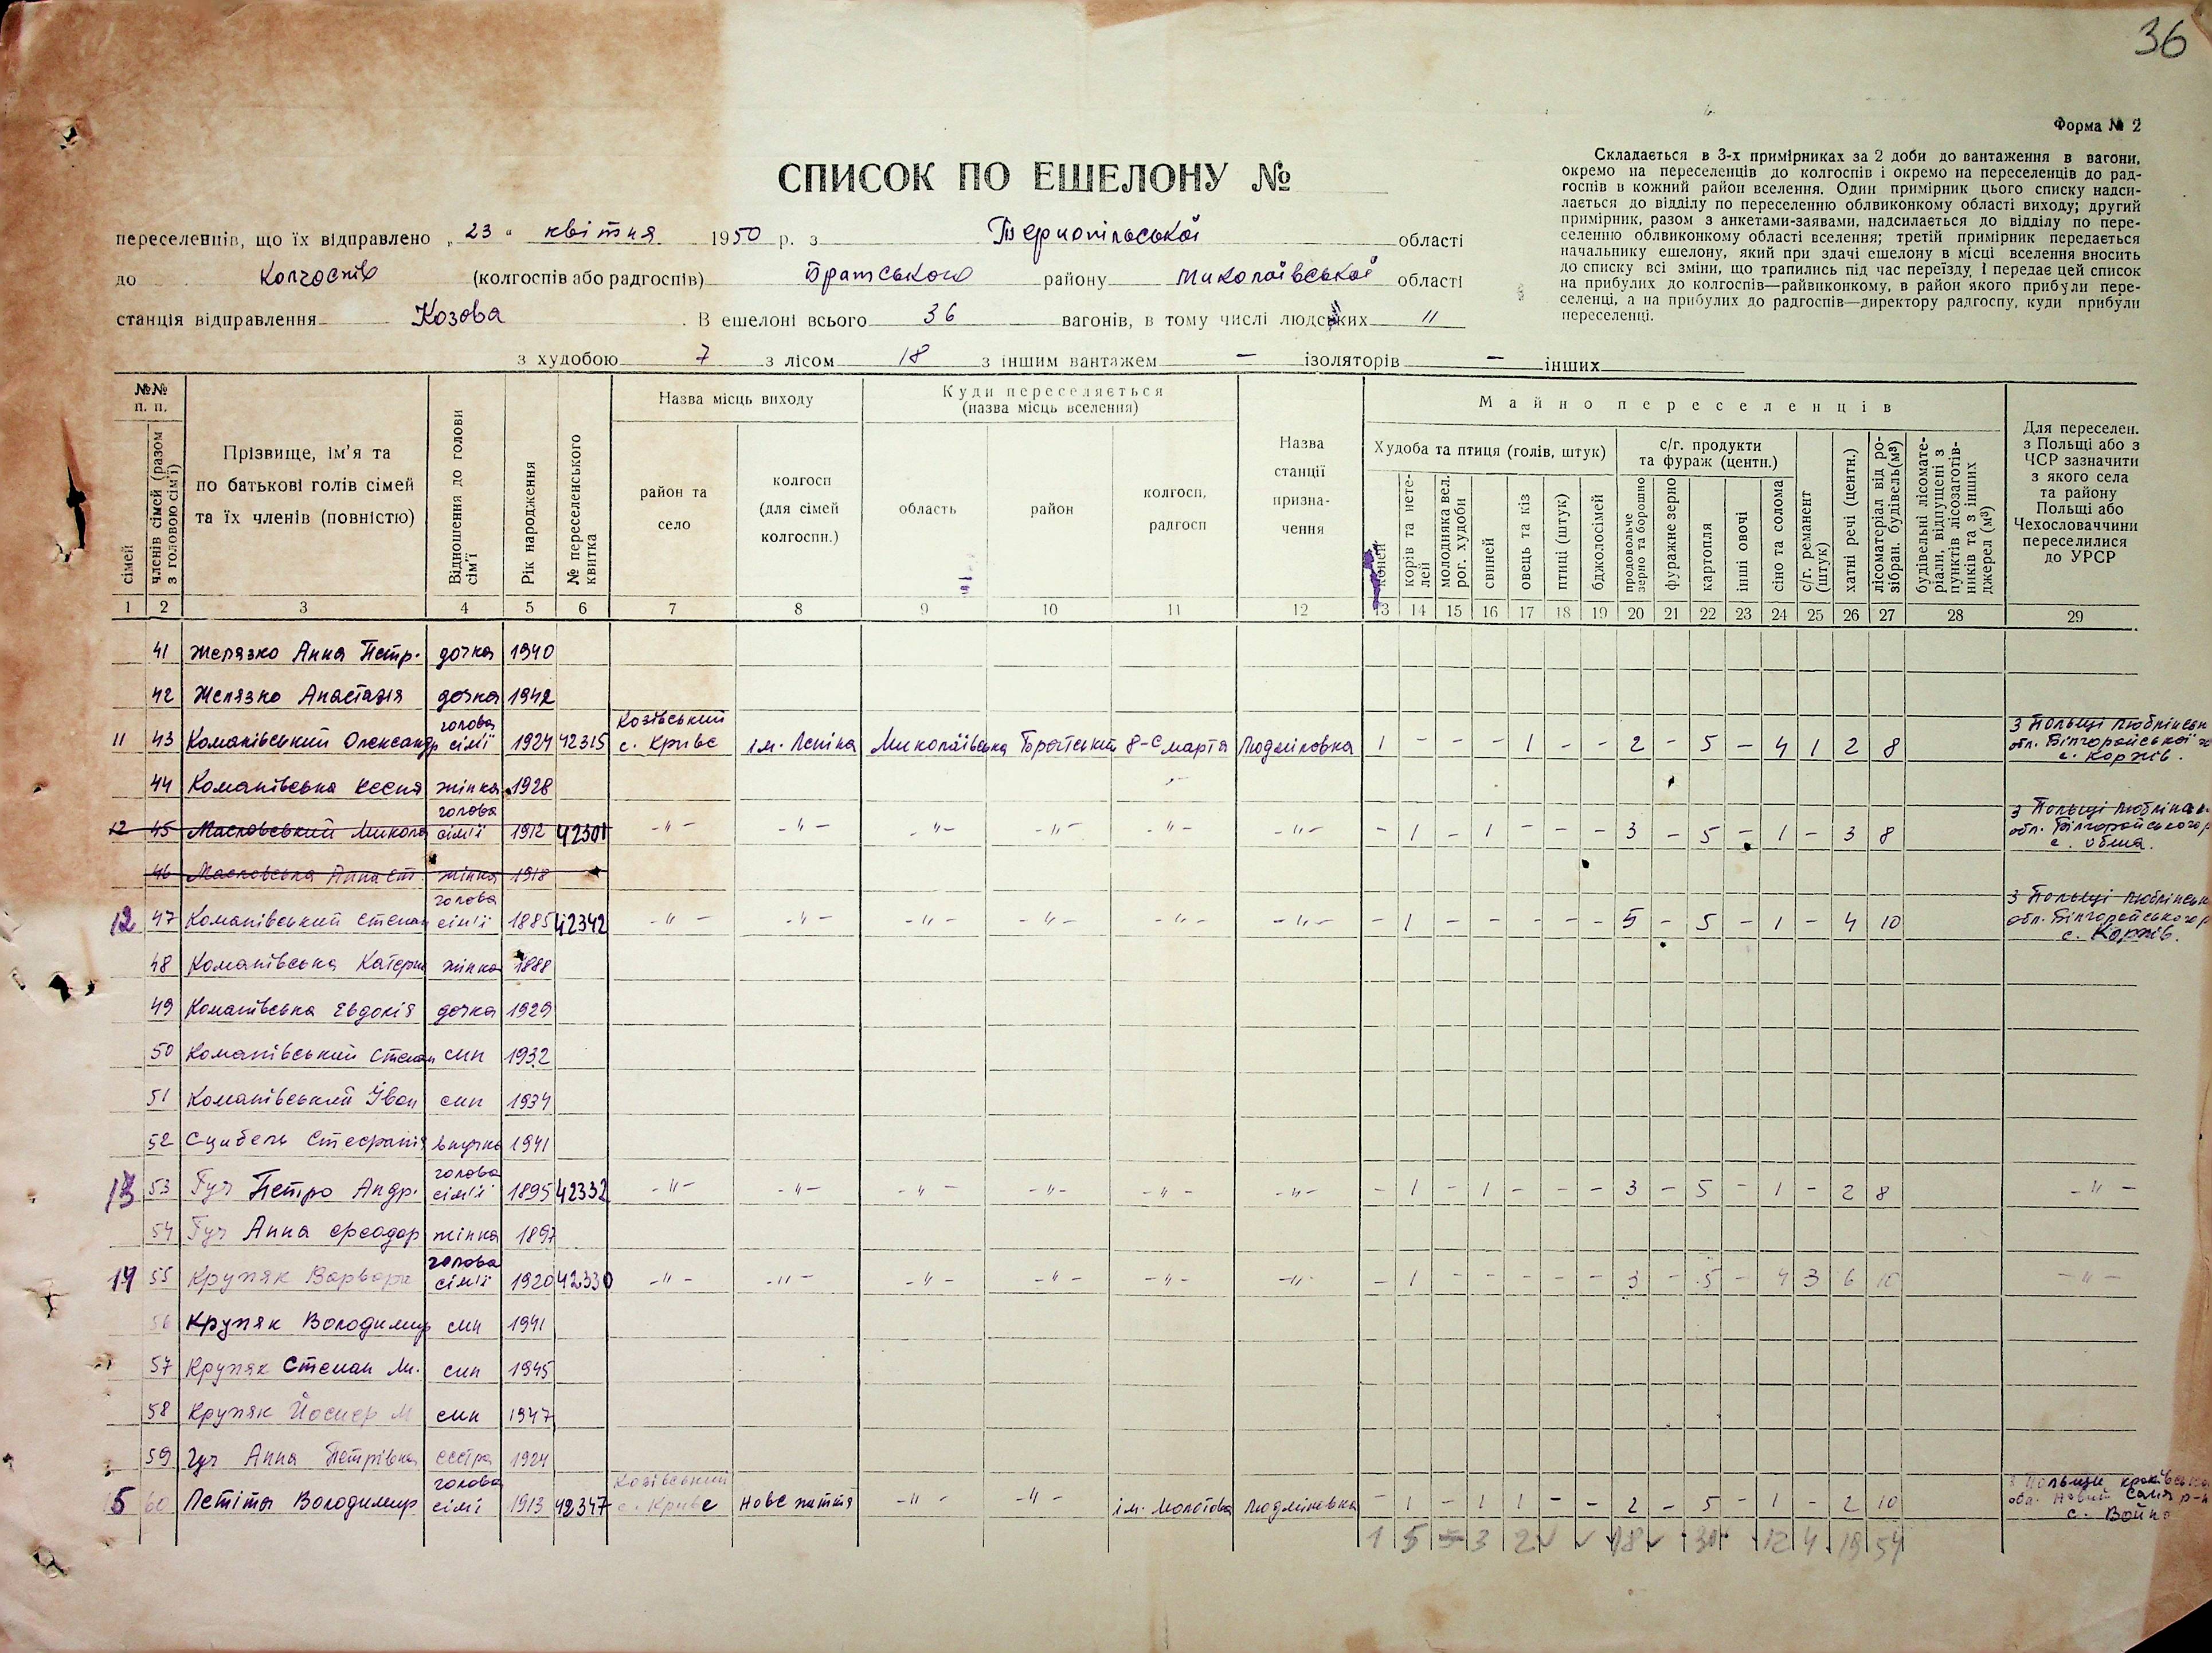 36
Форма № 2
СПИСОК ПО ЕШЕЛОНУ №
Складається в 3-х примірниках за 2 доби до вантаження в вагони,
окремо на переселенців до колгоспів і окремо на переселенців до рад-
госпів в кожний район вселення. Один примірник цього списку надси-
лається до відділу по переселенню облвиконкому області виходу; другий
примірник, разом з анкетами-заявами, надсилається до відділу по пере-
селенню облвиконкому області вселення; третій примірник передається
начальнику ешелону, який при здачі ешелону в місці вселення вносить
до списку всі зміни, що трапились під час переїзду, і передає цей список
на прибулих до колгоспів—райвиконкому, в район якого прибули пере-
селенці, а на прибулих до радгоспів—директору радгоспу, куди прибули
переселенці.
переселенців, що їх відправлено „23“ квітня 1950 р. з Тернопільської області
до колгоспів (колгоспів або радгоспів) Братського району Миколаївської області
станція відправлення Козова. В ешелоні всього 36 вагонів, в тому числі людських 11
з худобою 7 з лісом 18 з іншим вантажем — ізоляторів — інших
№№ п. п.
сімей
членів сімей (разом з головою сім'ї)
Прізвище, ім'я та по батькові голів сімей та їх членів (повністю)
Відношення до голови сім'ї
Рік народження
№ переселенського квитка
Назва місць виходу
район та село
колгосп (для сімей колгоспн.)
Куди переселяється (назва місць вселення)
область
район
колгосп, радгосп
Назва станції призна-чення
Майно переселенців
Худоба та птиця (голів, штук)
коней
корів та нете-лей
молодняка вел. рог. худоби
свиней
овець та кіз
птиці (штук)
бджолосімей
с/г. продукти та фураж (центн.)
продовольче зерно та борошно
фуражне зерно
картопля
інші овочі
сіно та солома
с/г. реманент (штук)
хатні речі (центн.)
лісоматеріал від ро-зібран. будівель (м³)
будівельні лісомате-ріали, відпущені з пунктів лісозаготів-ників та з інших джерел (м³)
Для переселен. з Польщі або з ЧСР зазначити з якого села та району Польщі або Чехословаччини переселилися до УРСР
1 2 3 4 5 6 7 8 9 10 11 12 13 14 15 16 17 18 19 20 21 22 23 24 25 26 27 28 29
41 Желязко Анна Петр. дочка 1940
42 Желязко Анастазія дочка 1942
11 43 Команівський Олександр голова сім'ї 1924 42315 Козівський с. Криве ім. Леніна Миколаївська Братський 8-е марта Людміловка 1 - - - 1 - - 2 - 5 - 4 1 2 8 З Польщі Люблінськ обл. Білгорайської с. Коржів.
44 Команівська Ксеня жінка 1928
12 45 Масловський Микола голова сім'ї 1912 42301 -"- -"- -"- -"- -"- -"- - 1 - 1 - - - 3 - 5 - 1 - 3 8 З Польщі Люблінськ обл. Білгорайського р с. Обша.
46 Масловська Анна Ст. жінка 1918
12 47 Команівський Степан голова сім'ї 1885 42342 -"- -"- -"- -"- -"- -"- - 1 - - - - - 5 - 5 - 1 - 4 10 З Польщі Люблінськ обл. Білгорайського р с. Коржів.
48 Команівська Катерин жінка 1888
49 Команівська Євдокія дочка 1929
50 Команівський Степан син 1932
51 Команівський Іван син 1934
52 Сцибель Стефанія внучка 1941
13 53 Гуч Петро Андр. голова сім'ї 1895 42332 -"- -"- -"- -"- -"- -"- - 1 - 1 - - - 3 - 5 - 1 - 2 8 -"-
54 Гуч Анна Феодор жінка 1897
14 55 Крупяк Варвара голова сім'ї 1920 42330 -"- -"- -"- -"- -"- -"- - 1 - - - - - 3 - 5 - 4 3 6 10 -"-
56 Крупяк Володимир син 1941
57 Крупяк Степан М. син 1945
58 Крупяк Йосиф М син 1947
59 Гуч Анна Петрівна сестра 1924
15 60 Петіта Володимир голова сім'ї 1913 42347 Козівський с. Криве Нове життя -"- -"- ім. Молотова Людміловка - 1 - 1 1 - - 2 - 5 - 1 - 2 10 З Польщі краківська обл. Новий р-н с. Войно
1 5 3 2 18 30 12 4 19 54